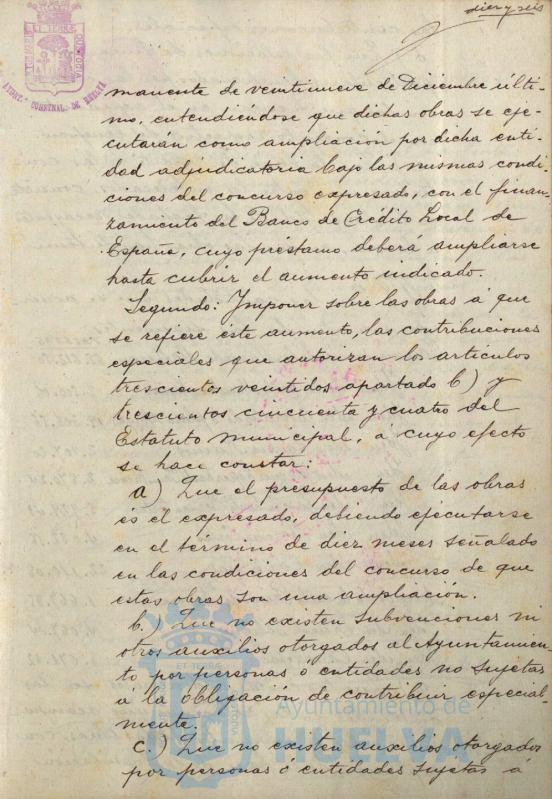 diez y seis
AYUNT. CONSTNAL. DE HUELVA
manente de veintinueve de Diciembre últi-
mo, entendiéndose que dichas obras se eje-
cutarán como ampliación por dicha enti-
dad adjudicatoria bajo las mismas condi-
ciones del concurso expresado, con el finan-
zamiento del Banco de Crédito Local de
España, cuyo préstamo deberá ampliarse
hasta cubrir el aumento indicado.
Segundo: Ymponer sobre las obras á que
se refiere éste aumento, las contribuciones
especiales que autorizan los artículos
trescientos veintidos apartado b) y
trescientos cincuenta y cuatro del
Estatuto Municipal, á cuyo efecto
se hace constar:
a) Que el presupuesto de las obras
és el expresado, debiendo ejecutarse
en el término de diez meses señalado
en las condiciones del concurso de que
estas obras son una ampliación.
b.) Que no existen subvenciones ni
otros auxilios otorgados al Ayuntamien-
to por personas ó entidades no sujetas
á la obligación de contribuir especial-
mente.
Ayuntamiento de
HUELVA
c.) Que no existen auxilios otorgados
por personas ó entidades sujetas á